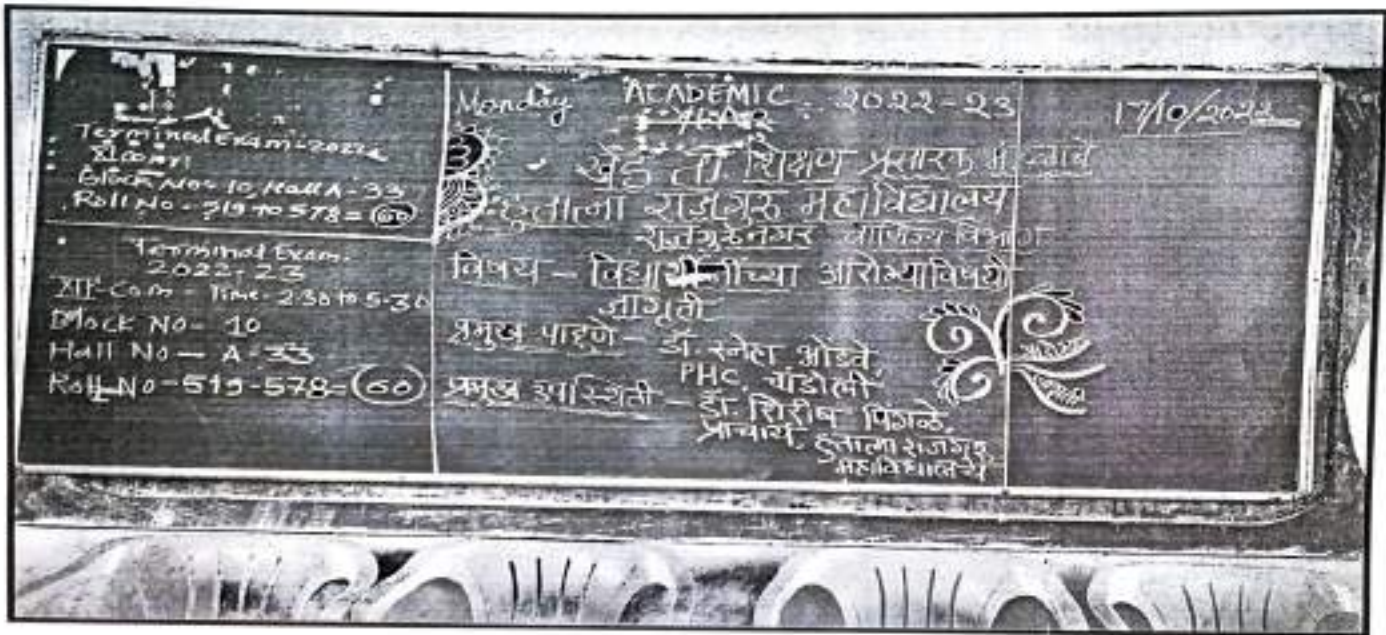 Terminal Exam-2022
Block No- 10, Hall A-33
Roll No - 519 to 578 = 60
Terminal Exam.
2022-23
XIIth Com - Time- 2.30 to 5.30
Block No- 10
Hall No - A-33
Roll No - 519-578 = 60
Monday ACADEMIC 2022-23
YEAR
खेड ता. शिक्षण प्रसारक मंडळाचे
हुतात्मा राजगुरु महाविद्यालय
राजगुरुनगर वाणिज्य विभाग
विषय - विद्यार्थीनींच्या आरोग्याविषयी
जागृती
प्रमुख पाहुणे - डॉ. स्नेहा ओडवे
PHC, चांडोली
प्रमुख उपस्थिती - डॉ. शिरीष पिंगळे
प्राचार्य, हुतात्मा राजगुरु
महाविद्यालय
17/10/2022